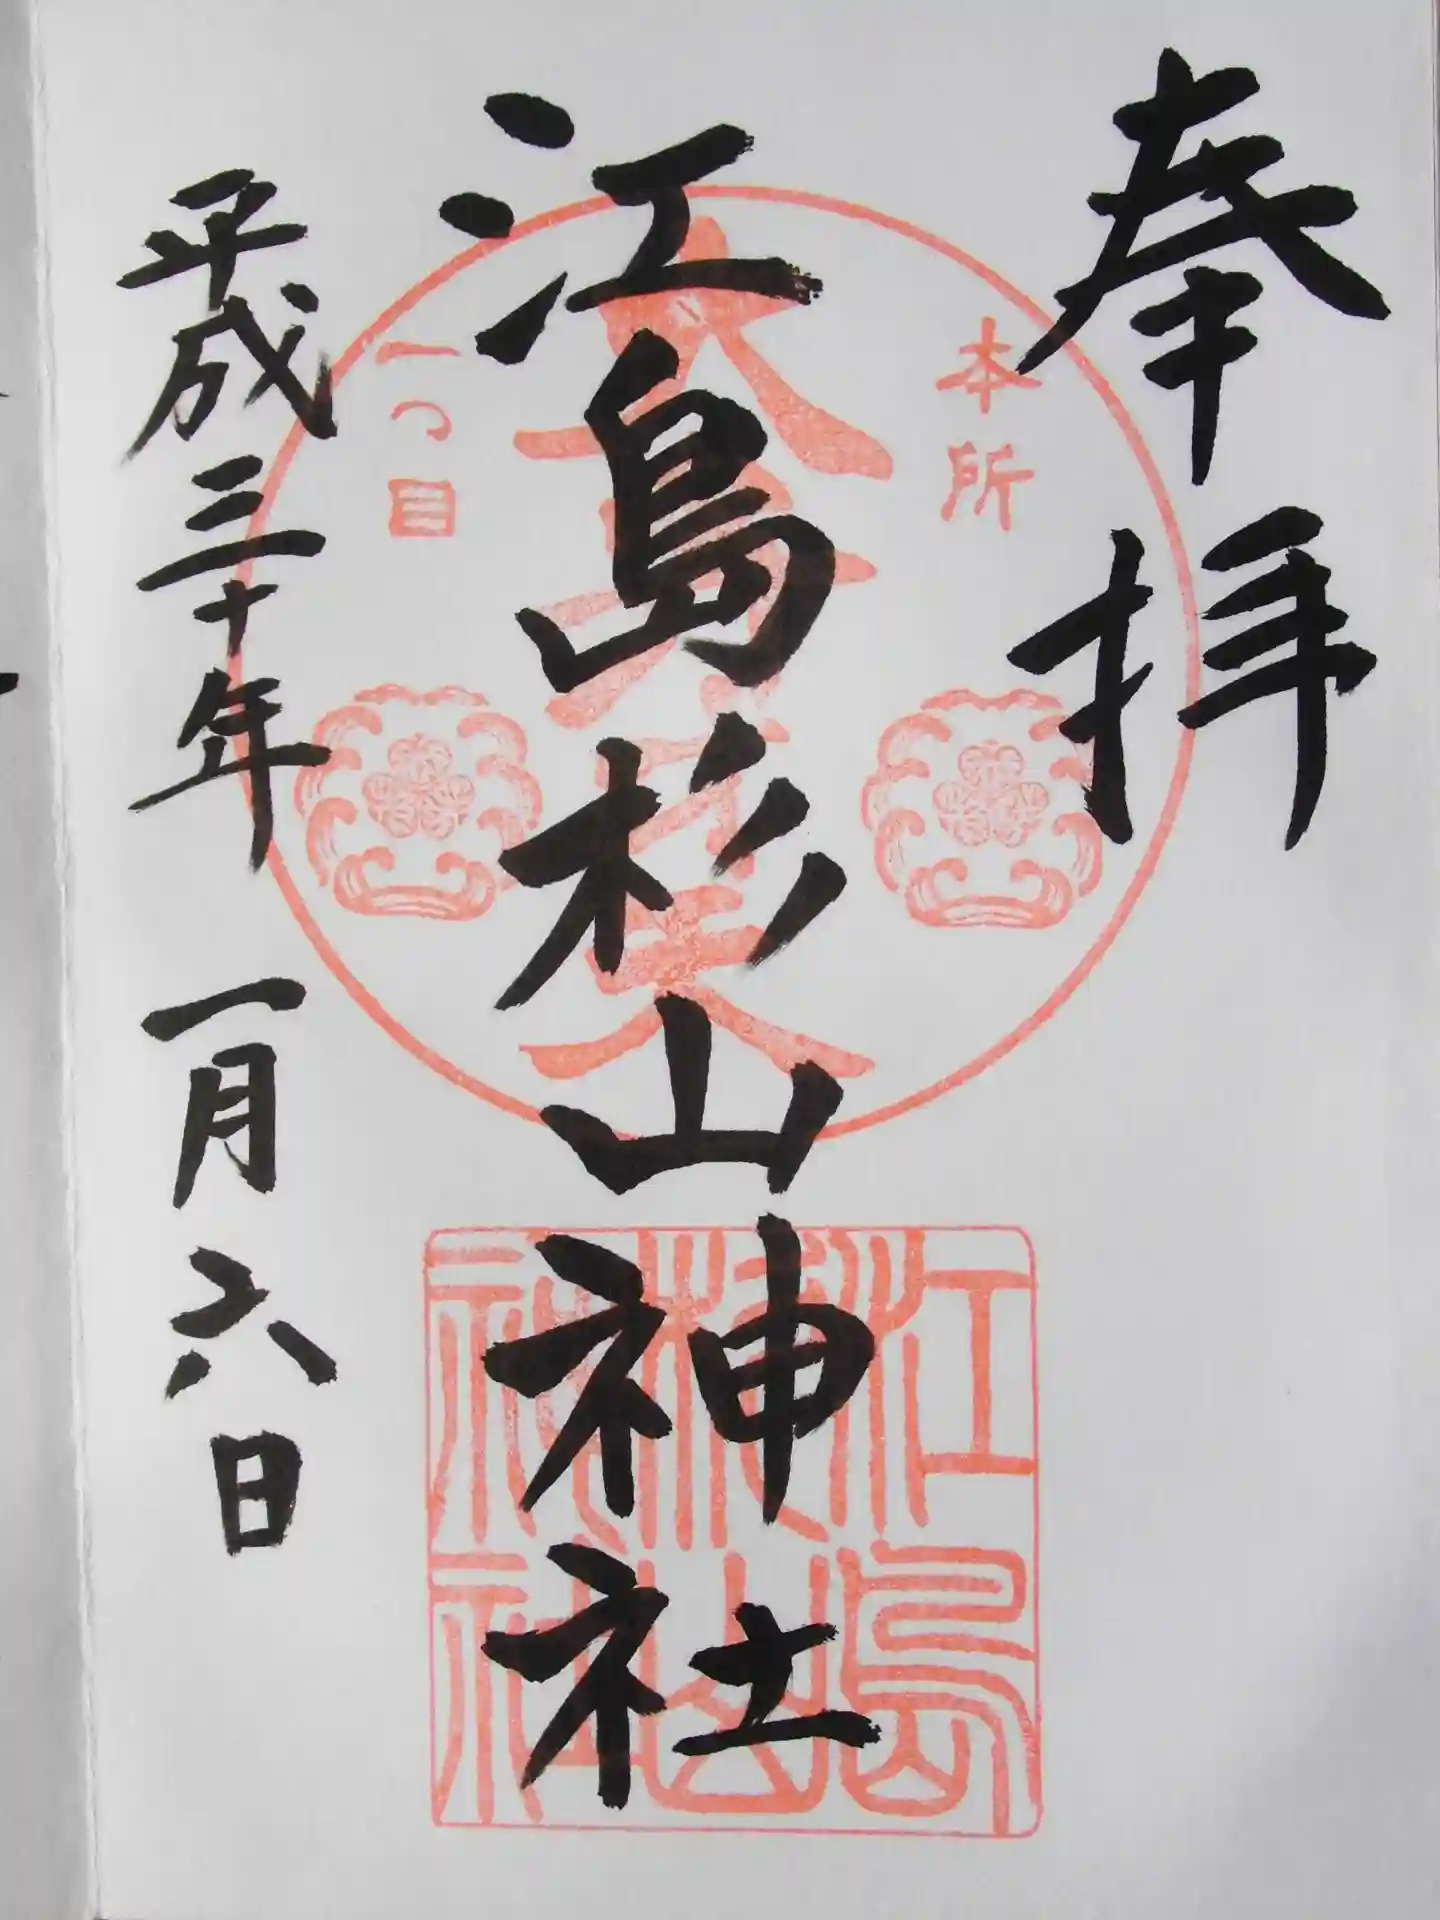 奉拝
本所
江島杉山神社
一つ目
平成三十年 一月六日
江島
杉山
神社